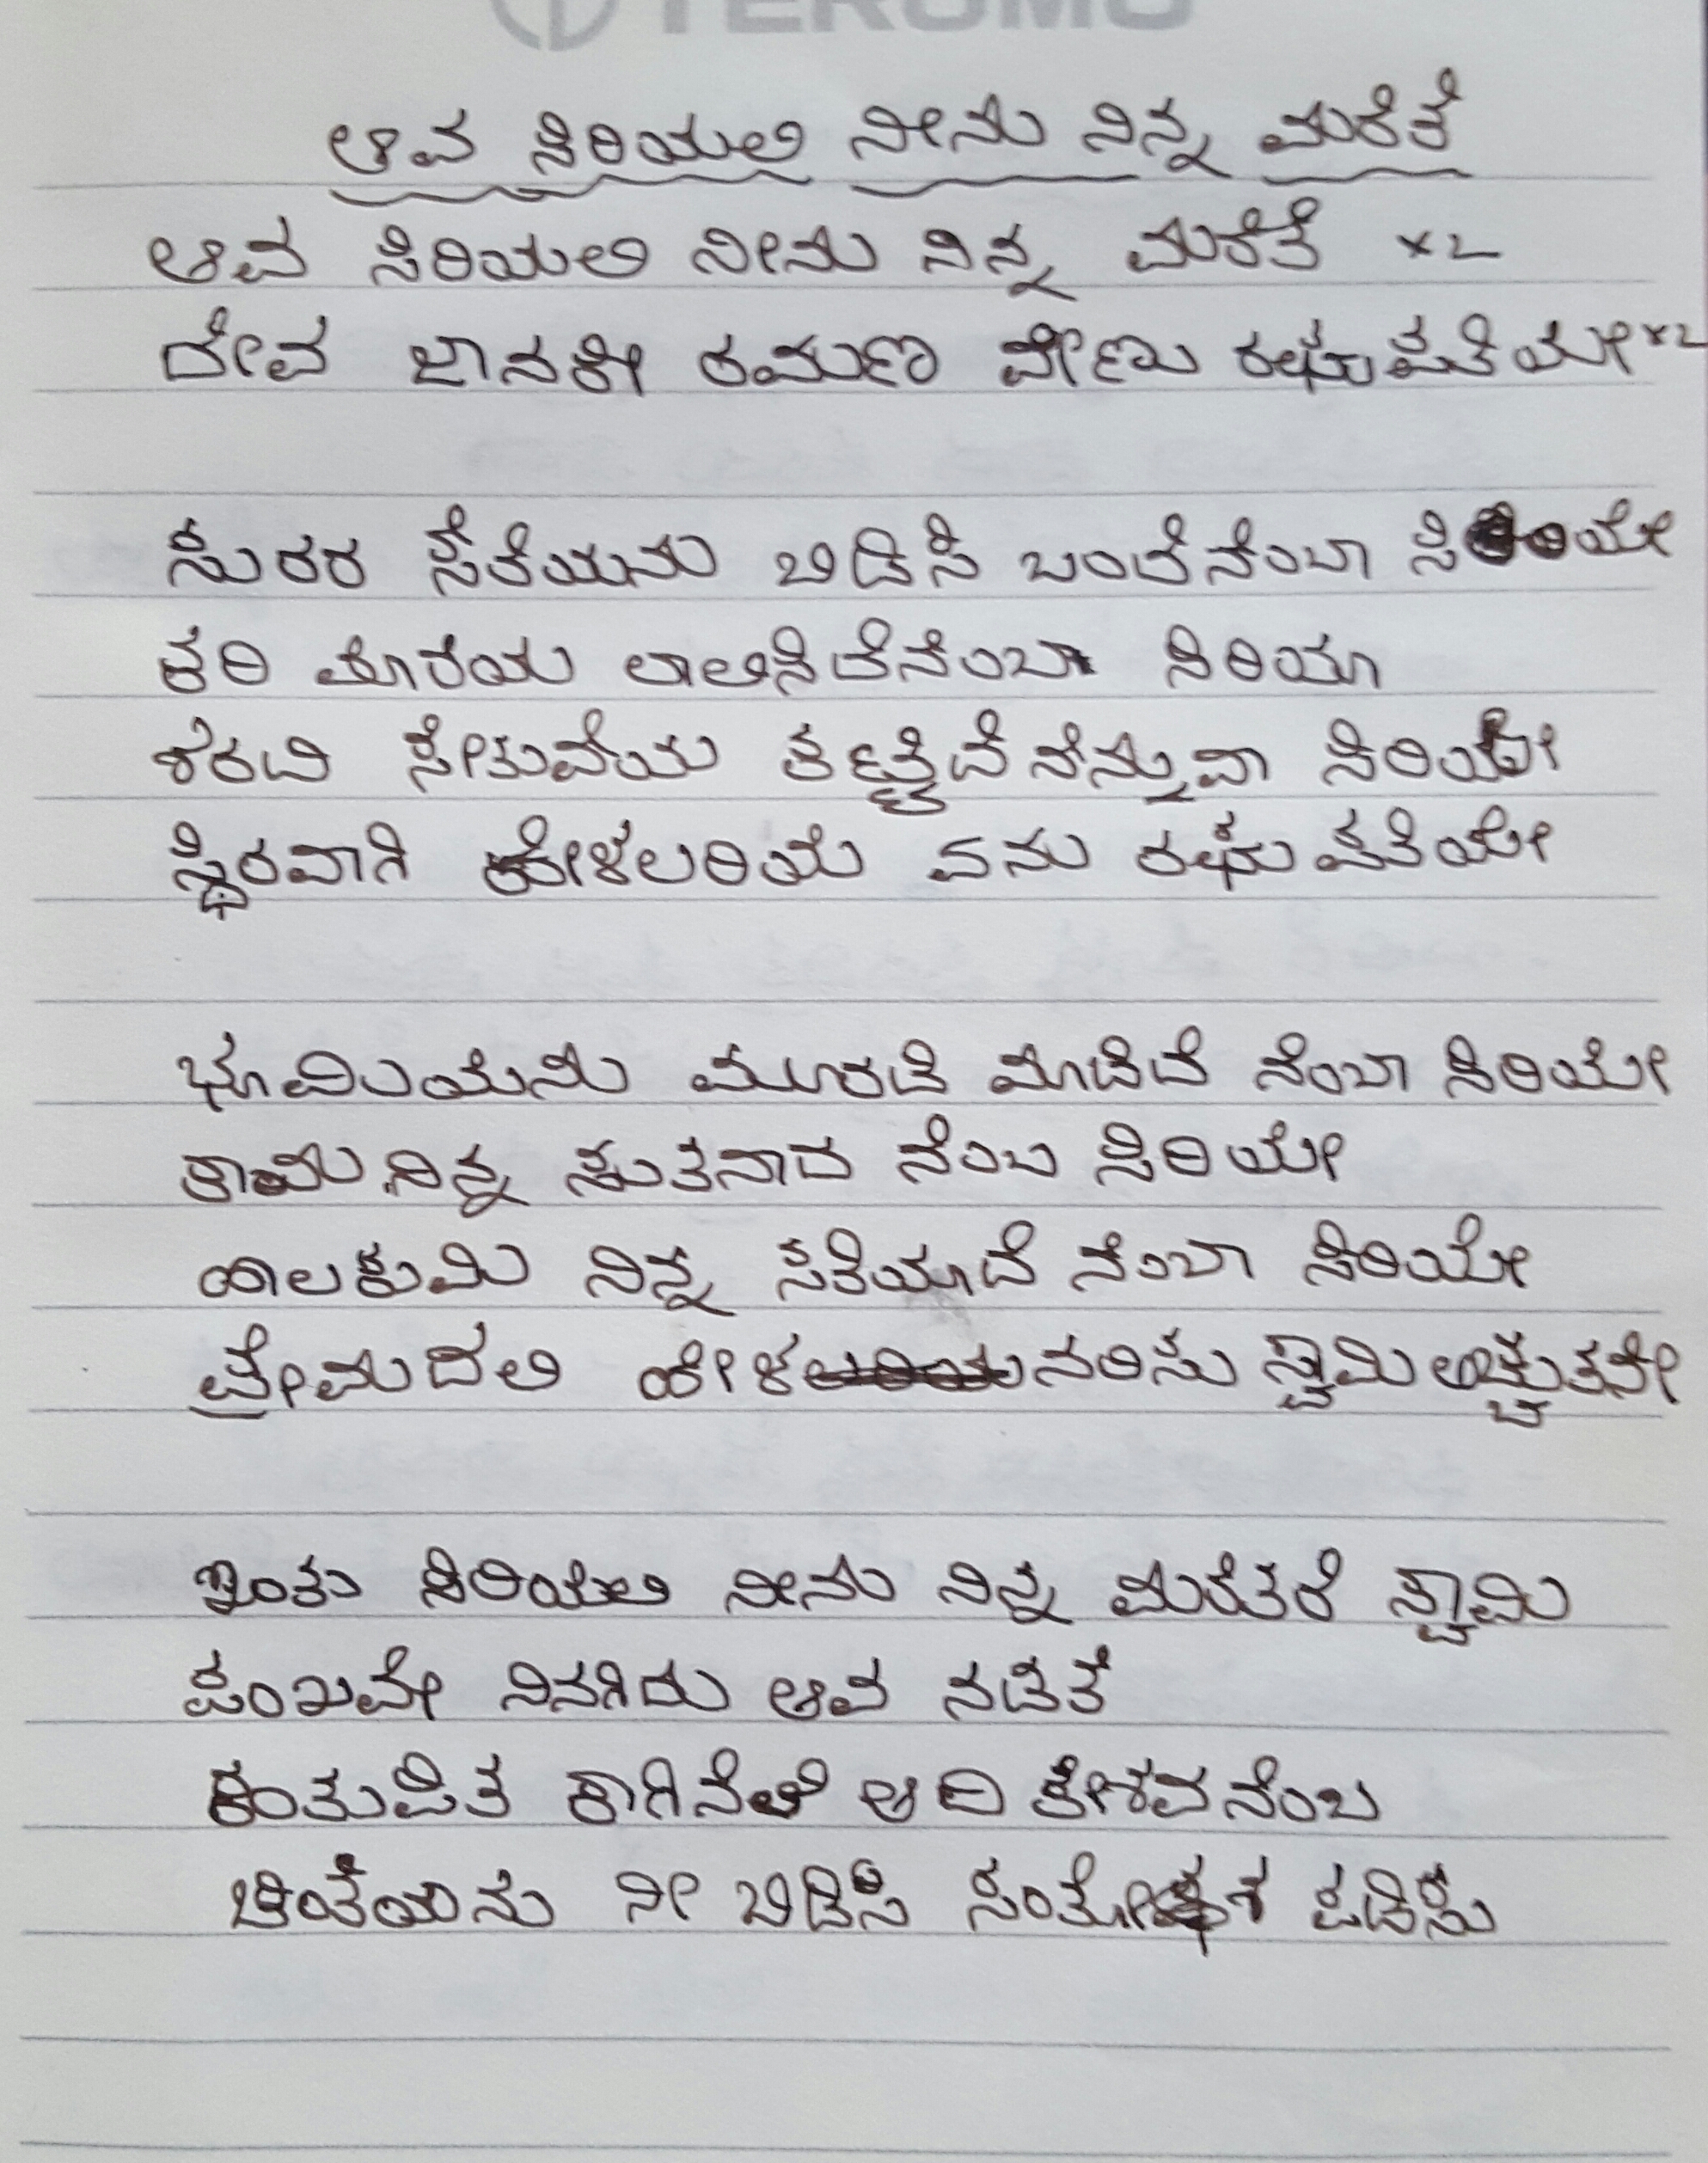 TERUMO
ಆವ ಸಿರಿಯಲಿ ನೀನು ನಿನ್ನ ಮರೆತೆ
ಆವ ಸಿರಿಯಲಿ ನೀನು ನಿನ್ನ ಮರೆತೆ x2
ದೇವ ಜಾನಕೀ ರಮಣ ವೇಣು ರಘುಪತಿಯೇ x2
ಸುರರ ಸೆರೆಯನು ಬಿಡಿಸಿ ಬಂದೆನೆಂಬಾ ಸಿರಿಯೇ
ಕರಿ ಮೊರೆಯ ಲಾಲಿಸಿದೆನೆಂಬಾ ಸಿರಿಯಾ
ಶರದಿ ಸೇತುವೆಯ ಕಟ್ಟಿದೆನೆನ್ನುವಾ ಸಿರಿಯೇ
ಸ್ಥಿರವಾಗಿ ಹೇಳಲರಿಯೆ ಏನು ರಘುಪತಿಯೇ
ಭೂಮಿಯನು ಮೂರಡಿ ಮಾಡಿದೆ ನೆಂಬಾ ಸಿರಿಯೇ
ಕಾಮ ನಿನ್ನ ಸುತನಾದ ನೆಂಬ ಸಿರಿಯೇ
ಆ ಲಕುಮಿ ನಿನ್ನ ಸತಿಯಾದೆ ನೆಂಬಾ ಸಿರಿಯೇ
ಪ್ರೇಮದಲಿ ಹೇಳ ನರಿಸು ಸ್ವಾಮಿ ಅಚ್ಚುತನೇ
ಇಂತು ಸಿರಿಯಲಿ ನೀನು ನಿನ್ನ ಮರೆತರೆ ಸ್ವಾಮಿ
ಪಂಥವೇ ನಿನಗಿದು ಆವ ನಡತೆ
ಕಂತುಪಿತ ಕಾಗಿನೆಲೆ ಆದಿ ಕೇಶವ ನೆಂಬ
ಚಿಂತೆಯನು ನೀ ಬಿಡಿಸಿ ಸಂತೋಶ ಪಡಿಸು